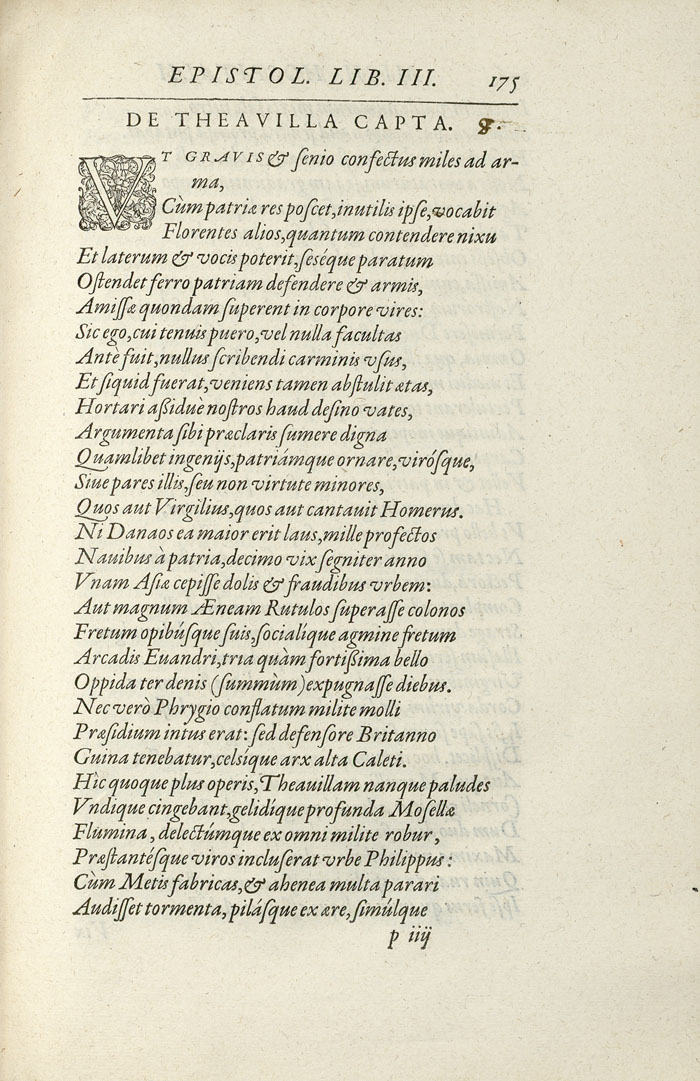 EPISTOL. LIB. III. 175
DE THEAVILLA CAPTA. 8.
VT GRAVIS & ſenio confectus miles ad ar-
ma,
Cùm patriæ res poſcet, inutilis ipſe, vocabit
Florentes alios, quantum contendere nixu
Et laterum & vocis poterit, ſeséque paratum
Oſtendet ferro patriam defendere & armis,
Amiſſæ quondam ſuperent in corpore vires:
Sic ego, cui tenuis puero, vel nulla facultas
Antè fuit, nullus ſcribendi carminis vſus,
Et ſiquid fuerat, veniens tamen abſtulit ætas,
Hortari aßiduè noſtros haud deſino vates,
Argumenta ſibi præclaris ſumere digna
Quamlibet ingenijs, patriámque ornare, virósque,
Siue pares illis, ſeu non virtute minores,
Quos aut Virgilius, quos aut cantauit Homerus.
Ni Danaos ea maior erit laus, mille profectos
Nauibus à patria, decimo vix ſegniter anno
Vnam Aſiæ cepiſſe dolis & fraudibus vrbem:
Aut magnum Æneam Rutulos ſuperaſſe colonos
Fretum opibúſque ſuis, ſocialíque agmine fretum
Arcadis Euandri, tria quàm fortißima bello
Oppida ter denis (ſummùm) expugnaſſe diebus.
Nec verò Phrygio conflatum milite molli
Præſidium intus erat: ſed defenſore Britanno
Guina tenebatur, celſíque arx alta Caleti.
Hîc quoque plus operis, Theauillam nanque paludes
Vndique cingebant, gelidíque profunda Moſellæ
Flumina, delectúmque ex omni milite robur,
Præſtantéſque viros incluſerat vrbe Philippus:
Cùm Metis fabricas, & ahenea multa parari
Audiſſet tormenta, pilásque ex ære, ſimúlque
p iiij